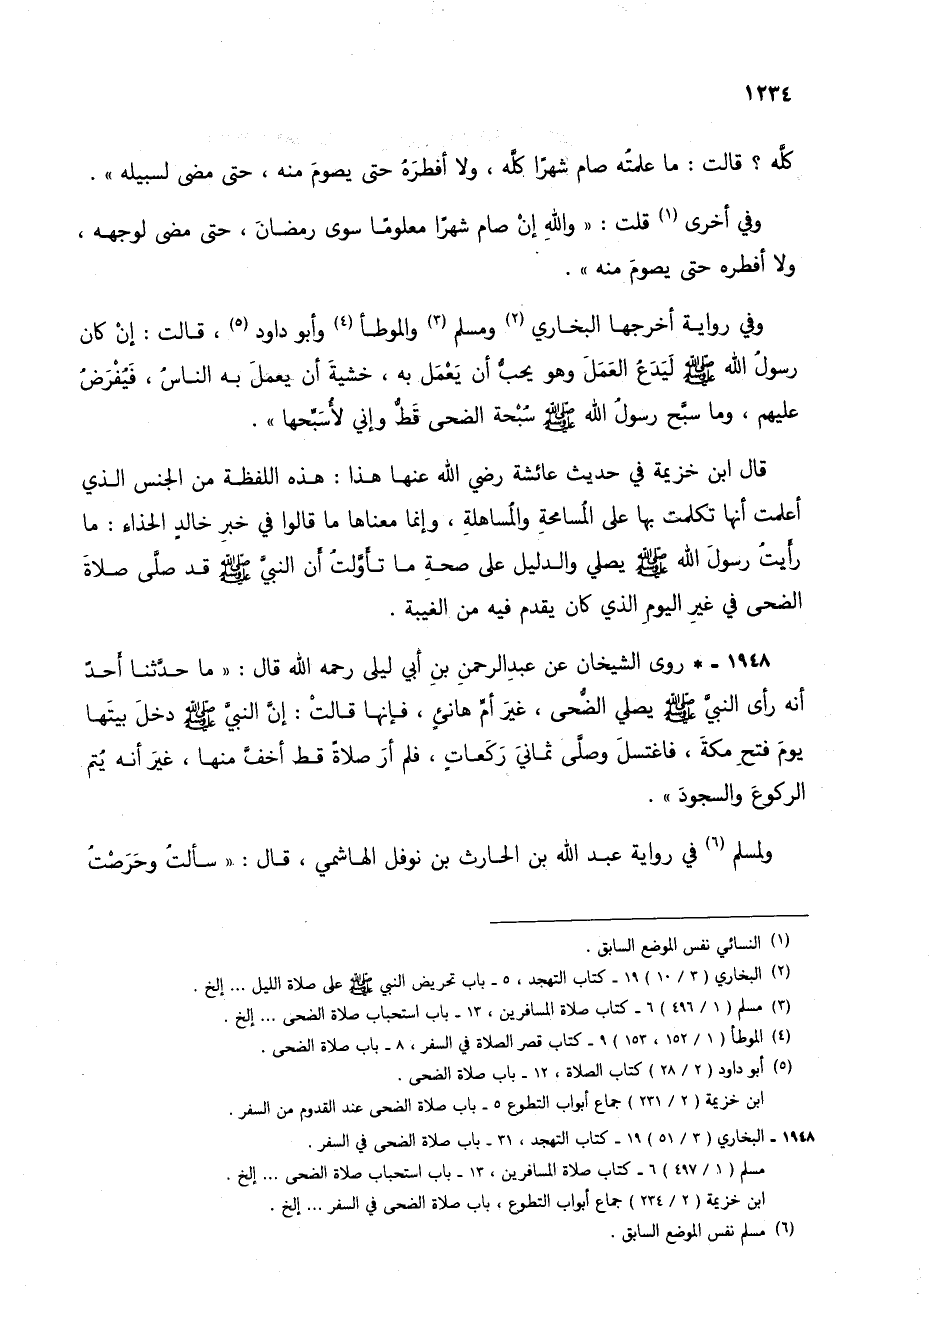 ١٢٣٤
كلَّه ؟ قالت : ما علمتُه صام شهرًا كلَّه ، ولا أفطرَهُ حتى يصومَ منه ، حتى مضى لسبيله » .
وفي أخرى (١) قلت : « واللهِ إنْ صام شهرًا معلومًا سوى رمضانَ ، حتى مضى لوجهه ،
ولا أفطره حتى يصومَ منه » .
وفي رواية أخرجها البخاري (٢) ومسلم (٣) والموطأ (٤) وأبو داود (٥) ، قالت : إنْ كان
رسولُ الله ﷺ لَيَدَعُ العَمَلَ وهو يحبُّ أن يَعْمَل به ، خشيةَ أن يعملَ به الناسُ ، فَيُفْرَضُ
عليهم ، وما سبَّح رسولُ الله ﷺ سُبْحة الضحى قَطُّ وإني لأُسَبِّحها » .
قال ابن خزيمة في حديث عائشة رضي الله عنها هذا : هذه اللفظة من الجنس الذي
أعلمت أنها تكلمت بها على المُسامحةِ والمُساهلةِ ، وإنما معناها ما قالوا في خبرِ خالدٍ الحذاء : ما
رأيتُ رسولَ الله ﷺ يصلي والدليل على صحةِ ما تأوَّلتُ أن النبيَّ ﷺ قد صلَّى صلاةَ
الضحى في غيرِ اليومِ الذي كان يقدم فيه من الغيبة .
١٩٤٨ - * روى الشيخان عن عبدالرحمنِ بنِ أبي ليلى رحمه الله قال : « ما حدَّثنا أحدٌ
أنه رأى النبيَّ ﷺ يصلي الضُّحى ، غيرَ أمِّ هانئٍ ، فإنها قالتْ : إنَّ النبيَّ ﷺ دخلَ بيتَها
يومَ فتحِ مكةَ ، فاغتسلَ وصلَّى ثمانيَ رَكَعاتٍ ، فلم أرَ صلاةً قط أخفَّ منها ، غيرَ أنه يُتم
الركوعَ والسجودَ » .
ولمسلم (٦) في رواية عبد الله بن الحارث بن نوفل الهاشمي ، قال : « سألتُ وحَرَصْتُ
(١) النسائي نفس الموضع السابق .
(٢) البخاري ( ٣ / ١٠ ) ١٩ - كتاب التهجد ، ٥ - باب تحريض النبي ﷺ على صلاة الليل ... إلخ .
(٣) مسلم ( ١ / ٤٩٦ ) ٦ - كتاب صلاة المسافرين ، ١٣ - باب استحباب صلاة الضحى ... إلخ .
(٤) الموطأ ( ١ / ١٥٢ ، ١٥٣ ) ٩ - كتاب قصر الصلاة في السفر ، ٨ - باب صلاة الضحى .
(٥) أبو داود ( ٢ / ٢٨ ) كتاب الصلاة ، ١٢ - باب صلاة الضحى .
ابن خزيمة ( ٢ / ٢٣١ ) جماع أبواب التطوع ٥ - باب صلاة الضحى عند القدوم من السفر .
١٩٤٨ - البخاري ( ٣ / ٥١ ) ١٩ - كتاب التهجد ، ٣١ - باب صلاة الضحى في السفر .
مسلم ( ١ / ٤٩٧ ) ٦ - كتاب صلاة المسافرين ، ١٣ - باب استحباب صلاة الضحى ... إلخ .
ابن خزيمة ( ٢ / ٢٣٤ ) جماع أبواب التطوع ، باب صلاة الضحى في السفر ... إلخ .
(٦) مسلم نفس الموضع السابق .